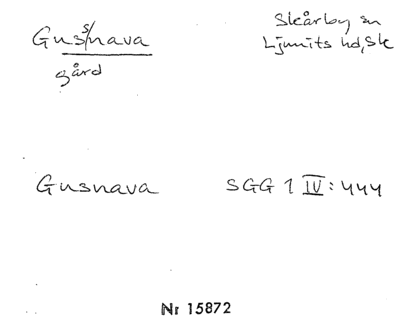 Gus/nava
s
gård
Skårby sn
Ljunits hd, Sk
Gusnava
SGG 1 IV: 444
Nr 15872